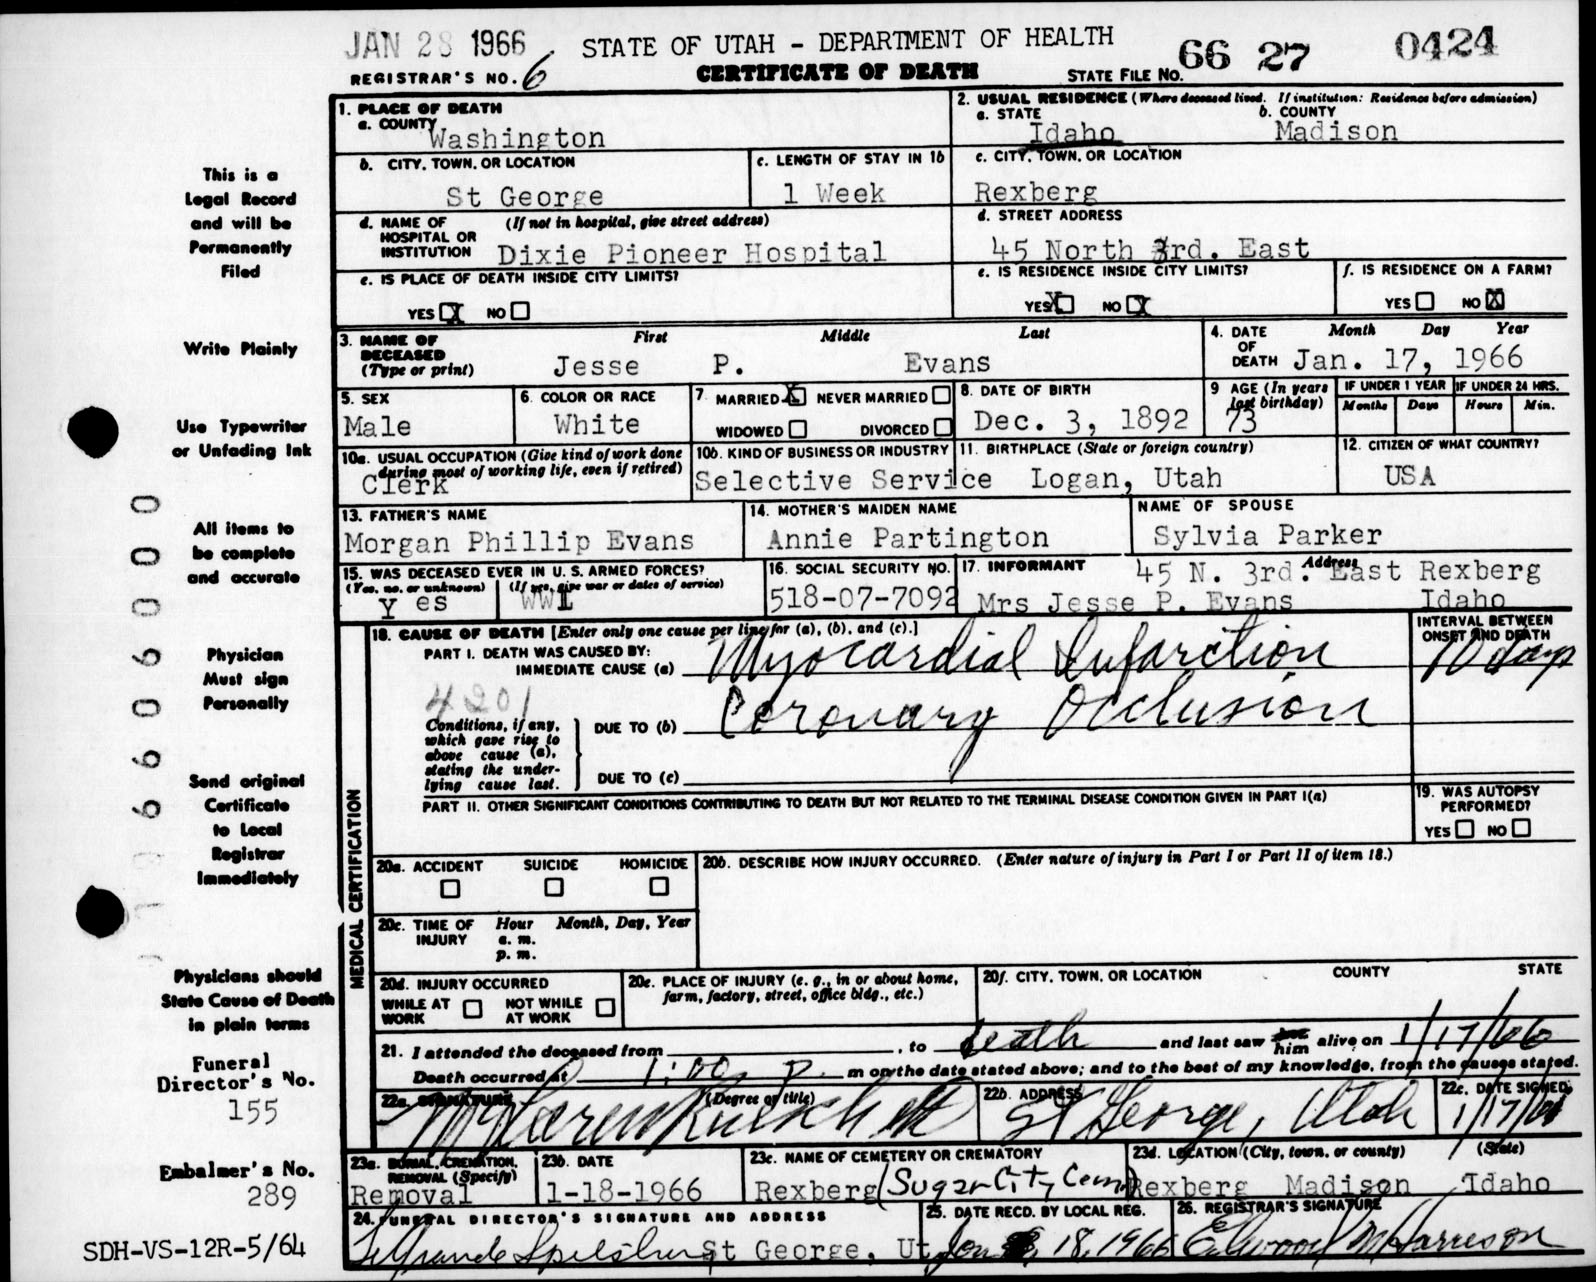 JAN 28 1966 STATE OF UTAH - DEPARTMENT OF HEALTH 66 27 0424
REGISTRAR'S NO. 6 CERTIFICATE OF DEATH STATE FILE NO.
1. PLACE OF DEATH
a. COUNTY
Washington
2. USUAL RESIDENCE (Where deceased lived. If institution: Residence before admission)
a. STATE b. COUNTY
Idaho Madison
b. CITY, TOWN, OR LOCATION
St George
c. LENGTH OF STAY IN 1b
1 Week
c. CITY, TOWN, OR LOCATION
Rexberg
d. NAME OF (If not in hospital, give street address)
HOSPITAL OR
INSTITUTION Dixie Pioneer Hospital
d. STREET ADDRESS
45 North 3rd. East
e. IS PLACE OF DEATH INSIDE CITY LIMITS?
YES X NO
e. IS RESIDENCE INSIDE CITY LIMITS?
YES X NO X
f. IS RESIDENCE ON A FARM?
YES NO X
3. NAME OF First Middle Last
DECEASED
(Type or print) Jesse P. Evans
4. DATE Month Day Year
OF
DEATH Jan. 17, 1966
5. SEX
Male
6. COLOR OR RACE
White
7 MARRIED X NEVER MARRIED
WIDOWED DIVORCED
8. DATE OF BIRTH
Dec. 3, 1892
9 AGE (In years
last birthday)
73
IF UNDER 1 YEAR IF UNDER 24 HRS.
Months Days Hours Min.
10a. USUAL OCCUPATION (Give kind of work done
during most of working life, even if retired)
Clerk
10b. KIND OF BUSINESS OR INDUSTRY
Selective Service
11. BIRTHPLACE (State or foreign country)
Logan, Utah
12. CITIZEN OF WHAT COUNTRY?
USA
13. FATHER'S NAME
Morgan Phillip Evans
14. MOTHER'S MAIDEN NAME
Annie Partington
NAME OF SPOUSE
Sylvia Parker
15. WAS DECEASED EVER IN U. S. ARMED FORCES?
(Yes, no, or unknown) (If yes, give war or dates of service)
Y es WW1
16. SOCIAL SECURITY NO.
518-07-7092
17. INFORMANT Address
45 N. 3rd. East Rexberg
Mrs Jesse P. Evans Idaho
MEDICAL CERTIFICATION
18. CAUSE OF DEATH [Enter only one cause per line for (a), (b), and (c).]
PART I. DEATH WAS CAUSED BY:
IMMEDIATE CAUSE (a) Myocardial Infarction
INTERVAL BETWEEN
ONSET AND DEATH
10 days
4201
Conditions, if any,
which gave rise to
above cause (a),
stating the under-
lying cause last.
DUE TO (b) Coronary Occlusion
DUE TO (c)
PART II. OTHER SIGNIFICANT CONDITIONS CONTRIBUTING TO DEATH BUT NOT RELATED TO THE TERMINAL DISEASE CONDITION GIVEN IN PART I(a)
19. WAS AUTOPSY
PERFORMED?
YES NO
20a. ACCIDENT SUICIDE HOMICIDE
20b. DESCRIBE HOW INJURY OCCURRED. (Enter nature of injury in Part I or Part II of item 18.)
20c. TIME OF Hour Month, Day, Year
INJURY a. m.
p. m.
20d. INJURY OCCURRED
WHILE AT NOT WHILE
WORK AT WORK
20e. PLACE OF INJURY (e. g., in or about home,
farm, factory, street, office bldg., etc.)
20f. CITY, TOWN, OR LOCATION COUNTY STATE
21. I attended the deceased from , to death and last saw him alive on 1/17/66
Death occurred at 1:00 p. m on the date stated above; and to the best of my knowledge, from the causes stated.
22a. SIGNATURE (Degree or title)
22b. ADDRESS
St George, Utah
22c. DATE SIGNED
1/17/66
23a. BURIAL, CREMATION,
REMOVAL (Specify)
Removal
23b. DATE
1-18-1966
23c. NAME OF CEMETERY OR CREMATORY
Rexberg (Sugar City Cem)
23d. LOCATION (City, town, or county) (State)
Rexberg Madison Idaho
24. FUNERAL DIRECTOR'S SIGNATURE AND ADDRESS
St George, Ut
25. DATE RECD. BY LOCAL REG.
Jan 18, 1966
26. REGISTRAR'S SIGNATURE
Ellwood M Harrison
This is a
Legal Record
and will be
Permanently
Filed
Write Plainly
Use Typewriter
or Unfading Ink
All items to
be complete
and accurate
Physician
Must sign
Personally
Send original
Certificate
to Local
Registrar
Immediately
Physicians should
State Cause of Death
in plain terms
Funeral
Director's No.
155
Embalmer's No.
289
SDH-VS-12R-5/64